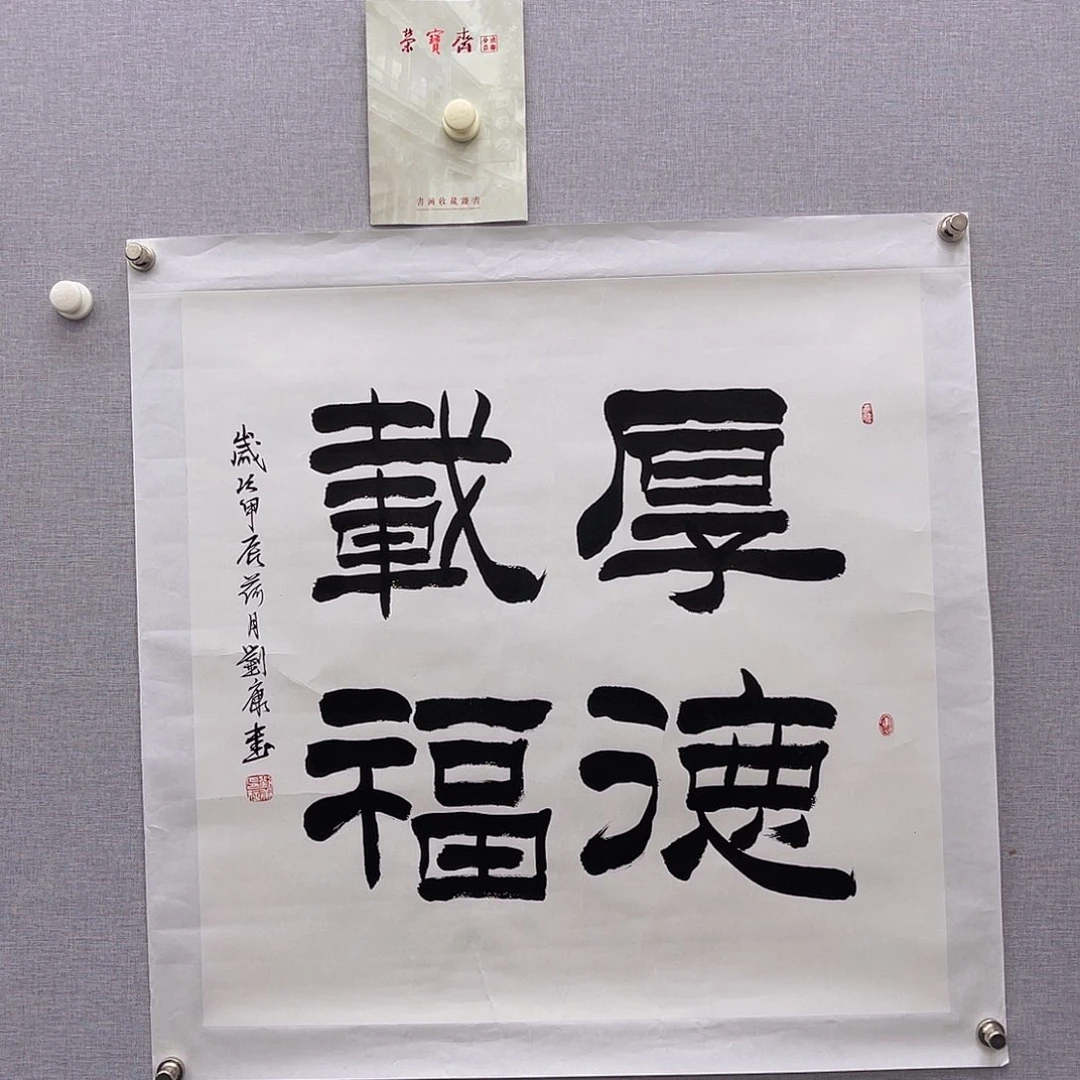 榮寶齋
書画收藏證書
厚德
載福
歲次甲辰荷月劉康書